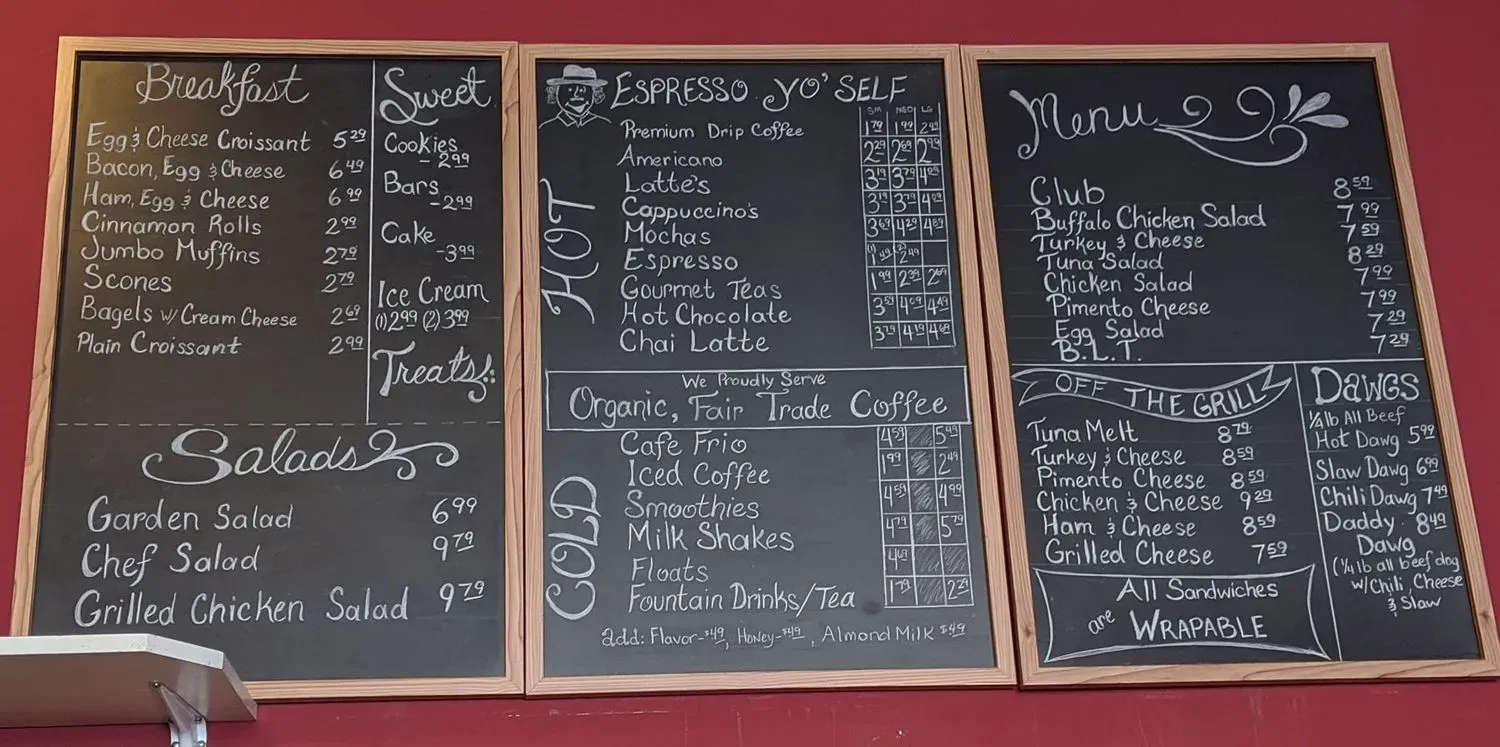 Breakfast
Egg & Cheese Croissant 5 29
Bacon, Egg & Cheese 6 49
Ham, Egg & Cheese 6 99
Cinnamon Rolls 2 99
Jumbo Muffins 2 79
Scones 2 79
Bagels w/ Cream Cheese 2 69
Plain Croissant 2 99
Sweet
Cookies
- 2 99
Bars
- 2 99
Cake
- 3 99
Ice Cream
(1) 2 99 (2) 3 99
Treats
Salads
Garden Salad 6 99
Chef Salad 9 79
Grilled Chicken Salad 9 79
ESPRESSO YO' SELF
SM MED LG
HOT
Premium Drip Coffee 1 79 1 99 2 49
Americano 2 29 2 69 2 99
Latte's 3 19 3 79
Cappuccino's 3 19 3 79
Mochas 3 69 4 29
Espresso (1) 1 49 (2) 2 49
Gourmet Teas 1 99 2 39 2 69
Hot Chocolate 3 59 4 09 4 49
Chai Latte 3 79 4 19 4 69
We Proudly Serve
Organic, Fair Trade Coffee
COLD
Cafe Frio 4 59 5 49
Iced Coffee 1 99 2 49
Smoothies 4 59 4 99
Milk Shakes 4 79 5 79
Floats 4 69
Fountain Drinks/Tea 1 79 2 29
add: Flavor-$.49, Honey-$.49, Almond Milk $.49
Menu
Club 8 59
Buffalo Chicken Salad 7 99
Turkey & Cheese 7 59
Tuna Salad 8 29
Chicken Salad 7 99
Pimento Cheese 7 99
Egg Salad 7 29
B.L.T. 7 29
OFF THE GRILL
Tuna Melt 8 79
Turkey & Cheese 8 59
Pimento Cheese 8 59
Chicken & Cheese 9 29
Ham & Cheese 8 59
Grilled Cheese 7 59
All Sandwiches
are WRAPABLE
DAWGS
1/4 lb All Beef
Hot Dawg 5 99
Slaw Dawg 6 99
Chili Dawg 7 49
Daddy 8 49
Dawg
(1/4 lb all beef dog
w/Chili, Cheese
& Slaw